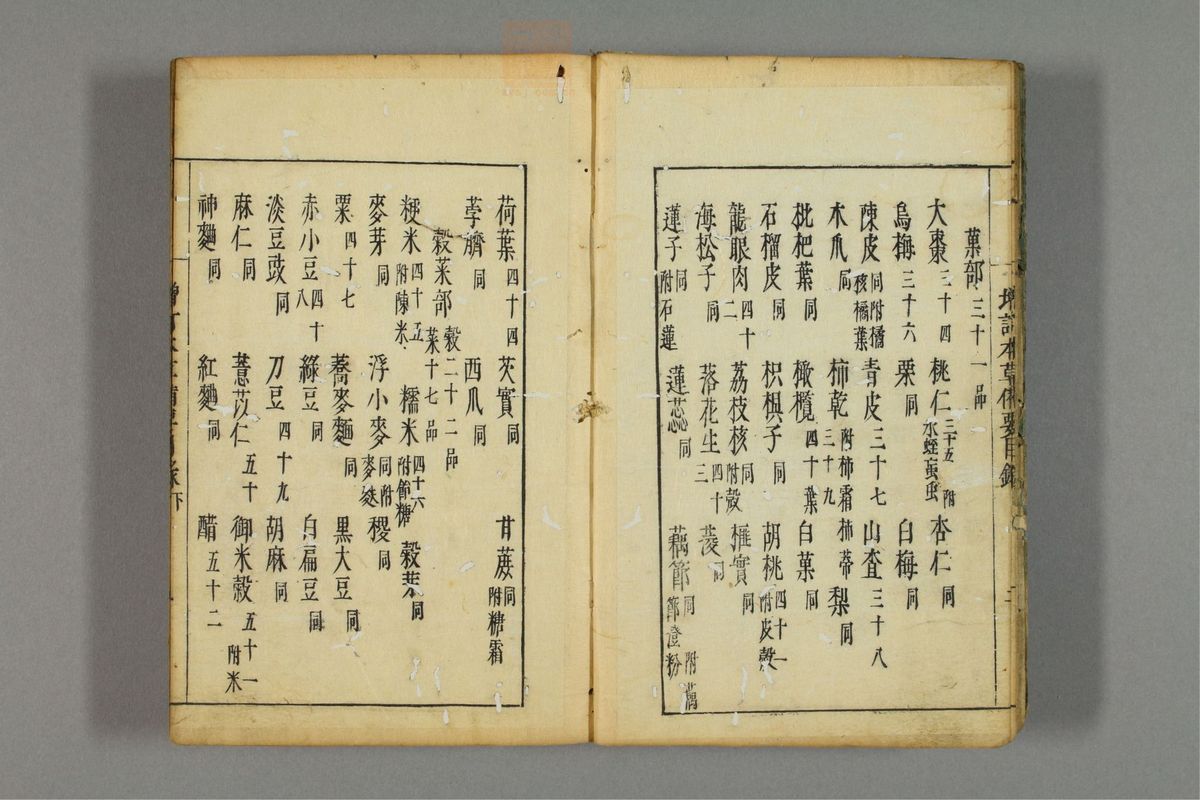 菓部 三十一品
大棗 三十四 桃仁 三十五 附水蛭䖟虫 杏仁 同
烏梅 三十六 栗 同 白梅 同
陳皮 同附橘核橘葉 青皮 三十七 山査 三十八
木瓜 同 柿乾 三十九 附柿霜柿蒂 梨 同
枇杷葉 同 橄欖 四十 白菓 同
石榴皮 同 枳椇子 同 胡桃 四十一 附皮殼
龍眼肉 四十二 荔枝核 同附殼 榧實 同
海松子 同 落花生 四十三 菱 同
蓮子 同附石蓮 蓮蕊 同 藕節 同 附藕節澄粉
荷葉 四十四 芡實 同 甘蔗 同附糖霜
荸臍 同 西瓜 同
穀菜部 穀二十二品 菜十七品
粳米 四十五 附陳米 糯米 四十六 附飴糖 穀芽 同
麥芽 同 浮小麥 同附麥麩 稷 同
粟 四十七 蕎麥麵 同 黑大豆 同
赤小豆 四十八 綠豆 同 白扁豆 同
淡豆豉 同 刀豆 四十九 胡麻 同
麻仁 同 薏苡仁 五十 御米殼 五十一 附米
神麯 同 紅麯 同 醋 五十二